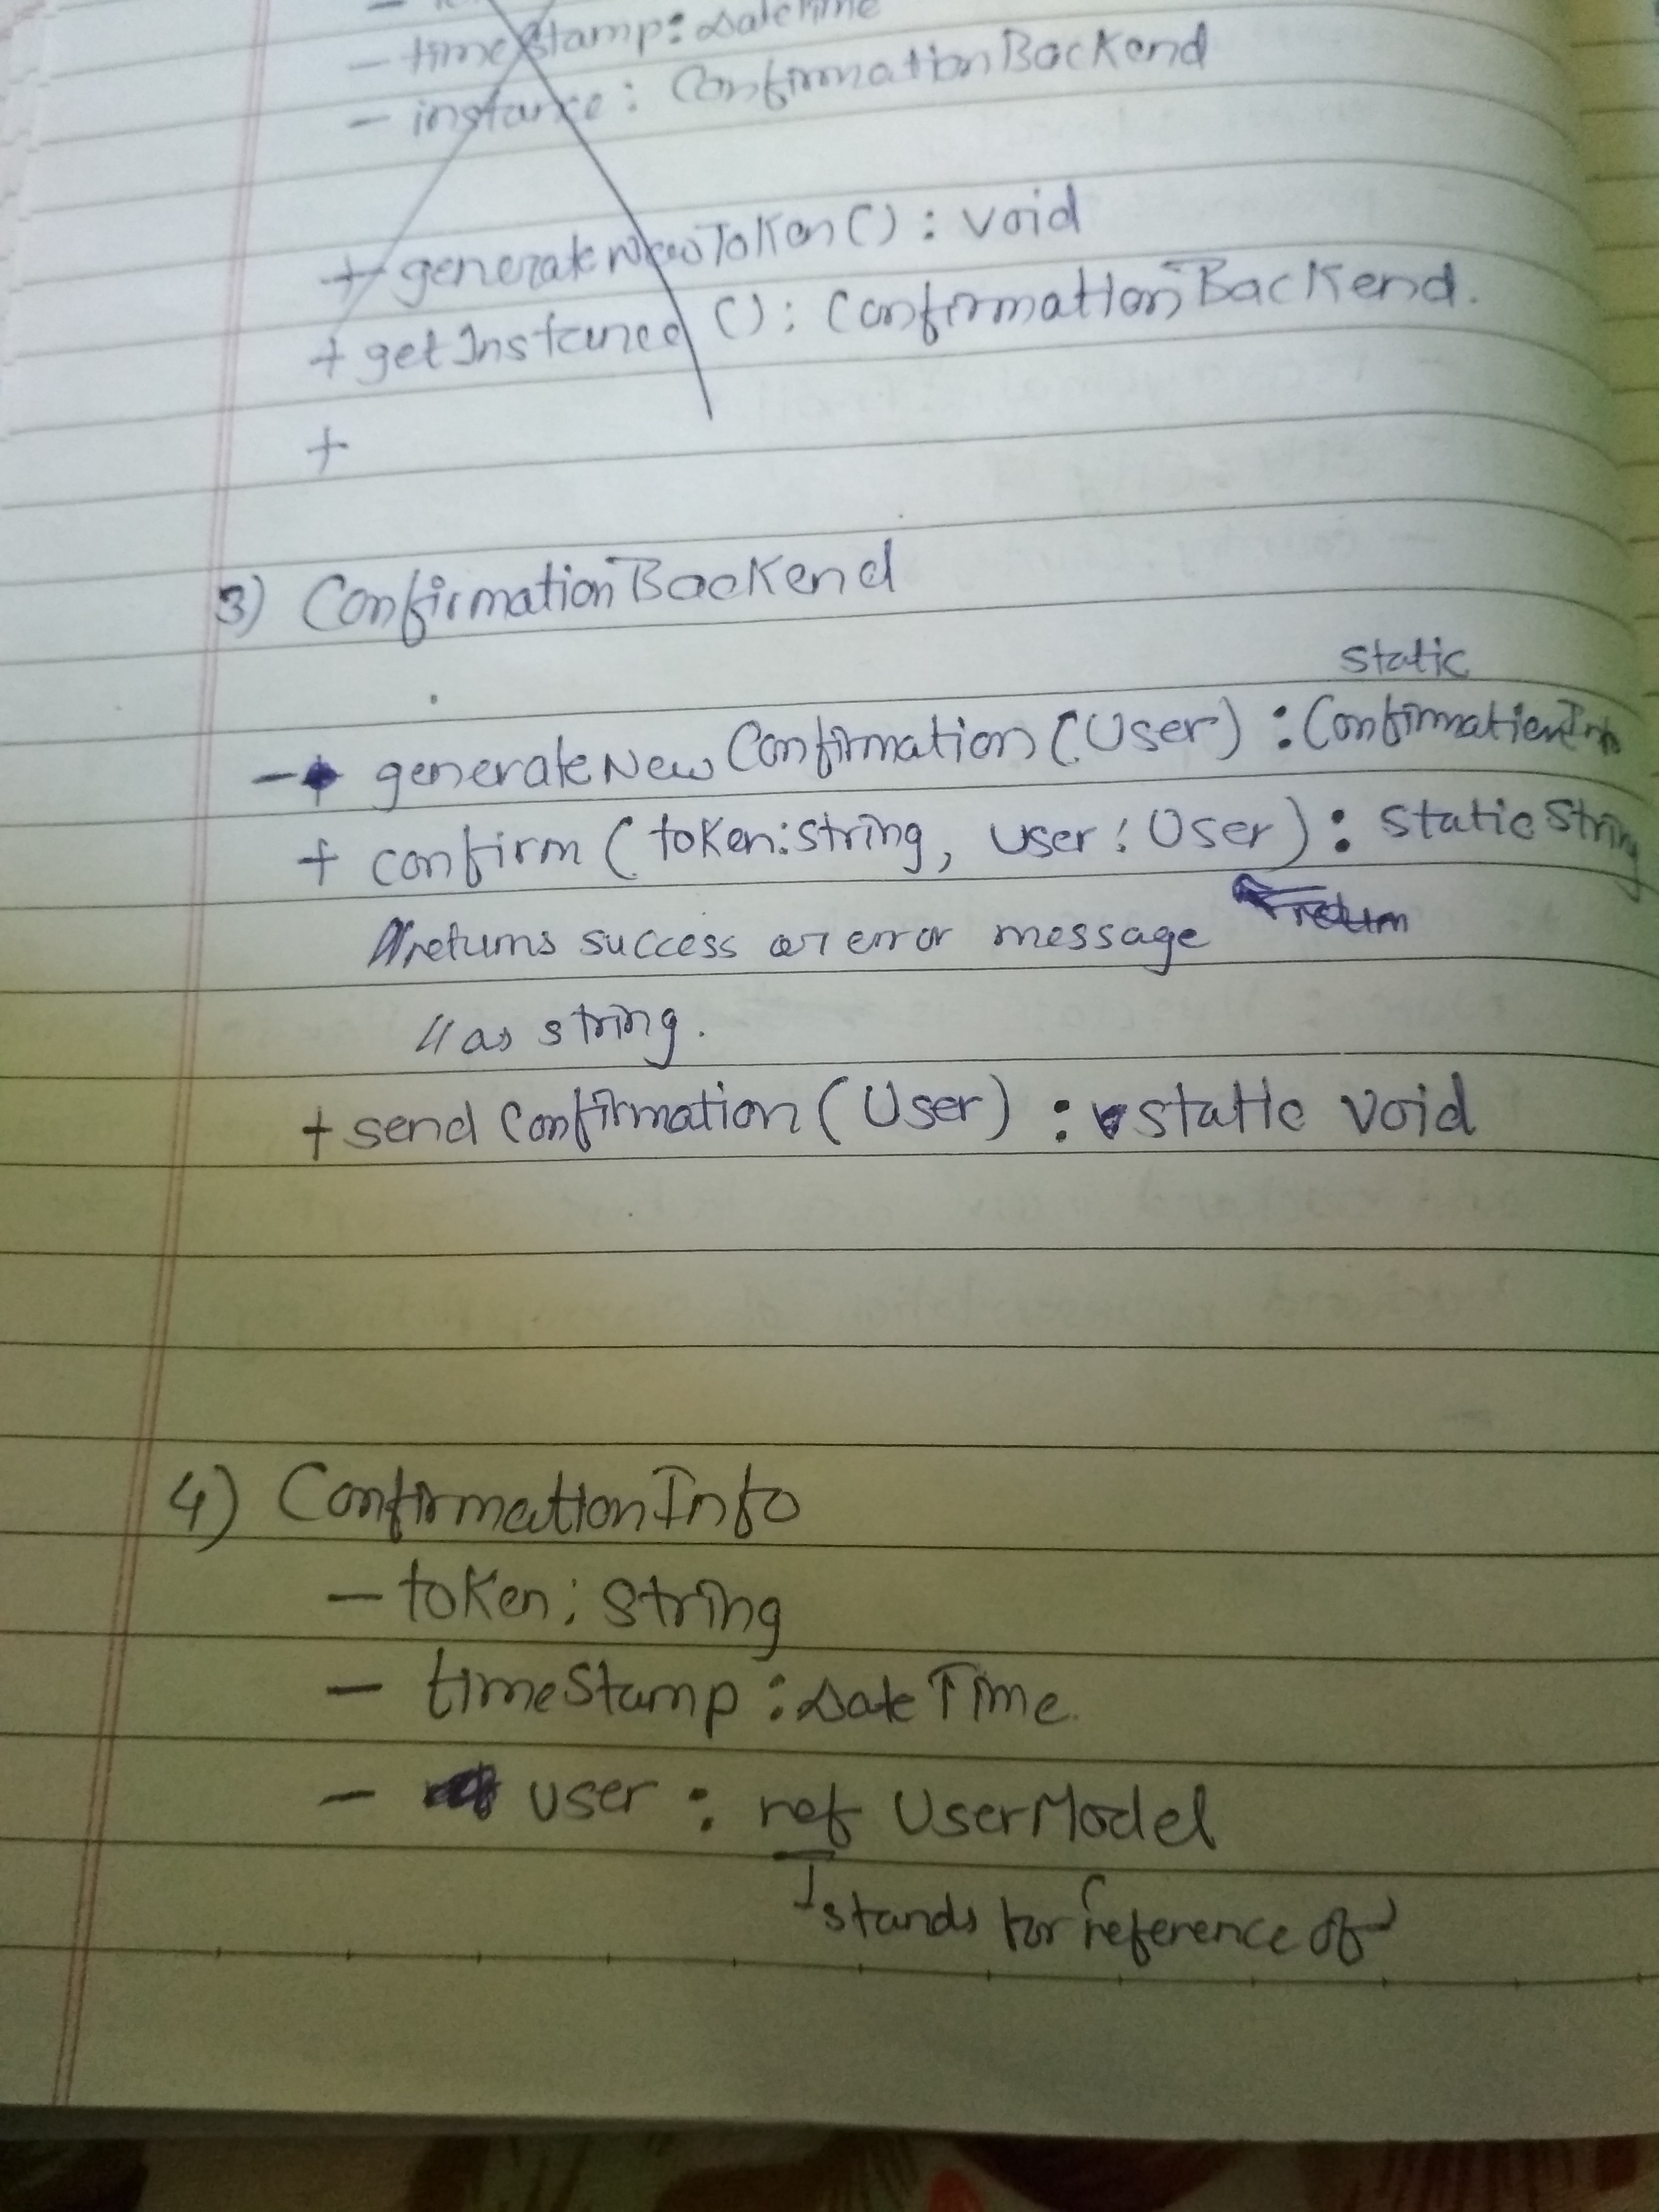 - timeStamp: DateTime
- instance: ConfirmationBackend
+ generateNewToken(): void
+ getInstance(): ConfirmationBackend.
+
3) ConfirmationBackend
static
- generateNewConfirmation(User) : ConfirmationInfo
+ confirm(token:string, user: User): static String
//returns success or error message return
//as string.
+ sendConfirmation(User) : static void
4) ConfirmationInfo
- token: String
- timeStamp: DateTime.
- user: ref UserModel
stands for reference of